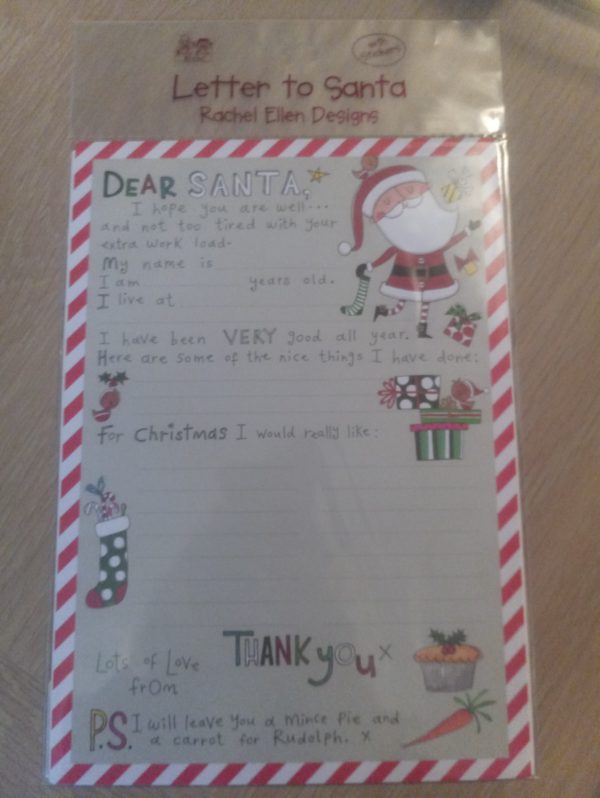 with stickers
Letter to Santa
Rachel Ellen Designs
DEAR SANTA,
I hope you are well...
and not too tired with your
extra work load.
My name is
I am years old.
I live at
I have been VERY good all year.
Here are some of the nice things I have done:
For Christmas I would really like:
THANK you x
Lots of Love
from
P.S. I will leave you a Mince Pie and
a carrot for Rudolph. x